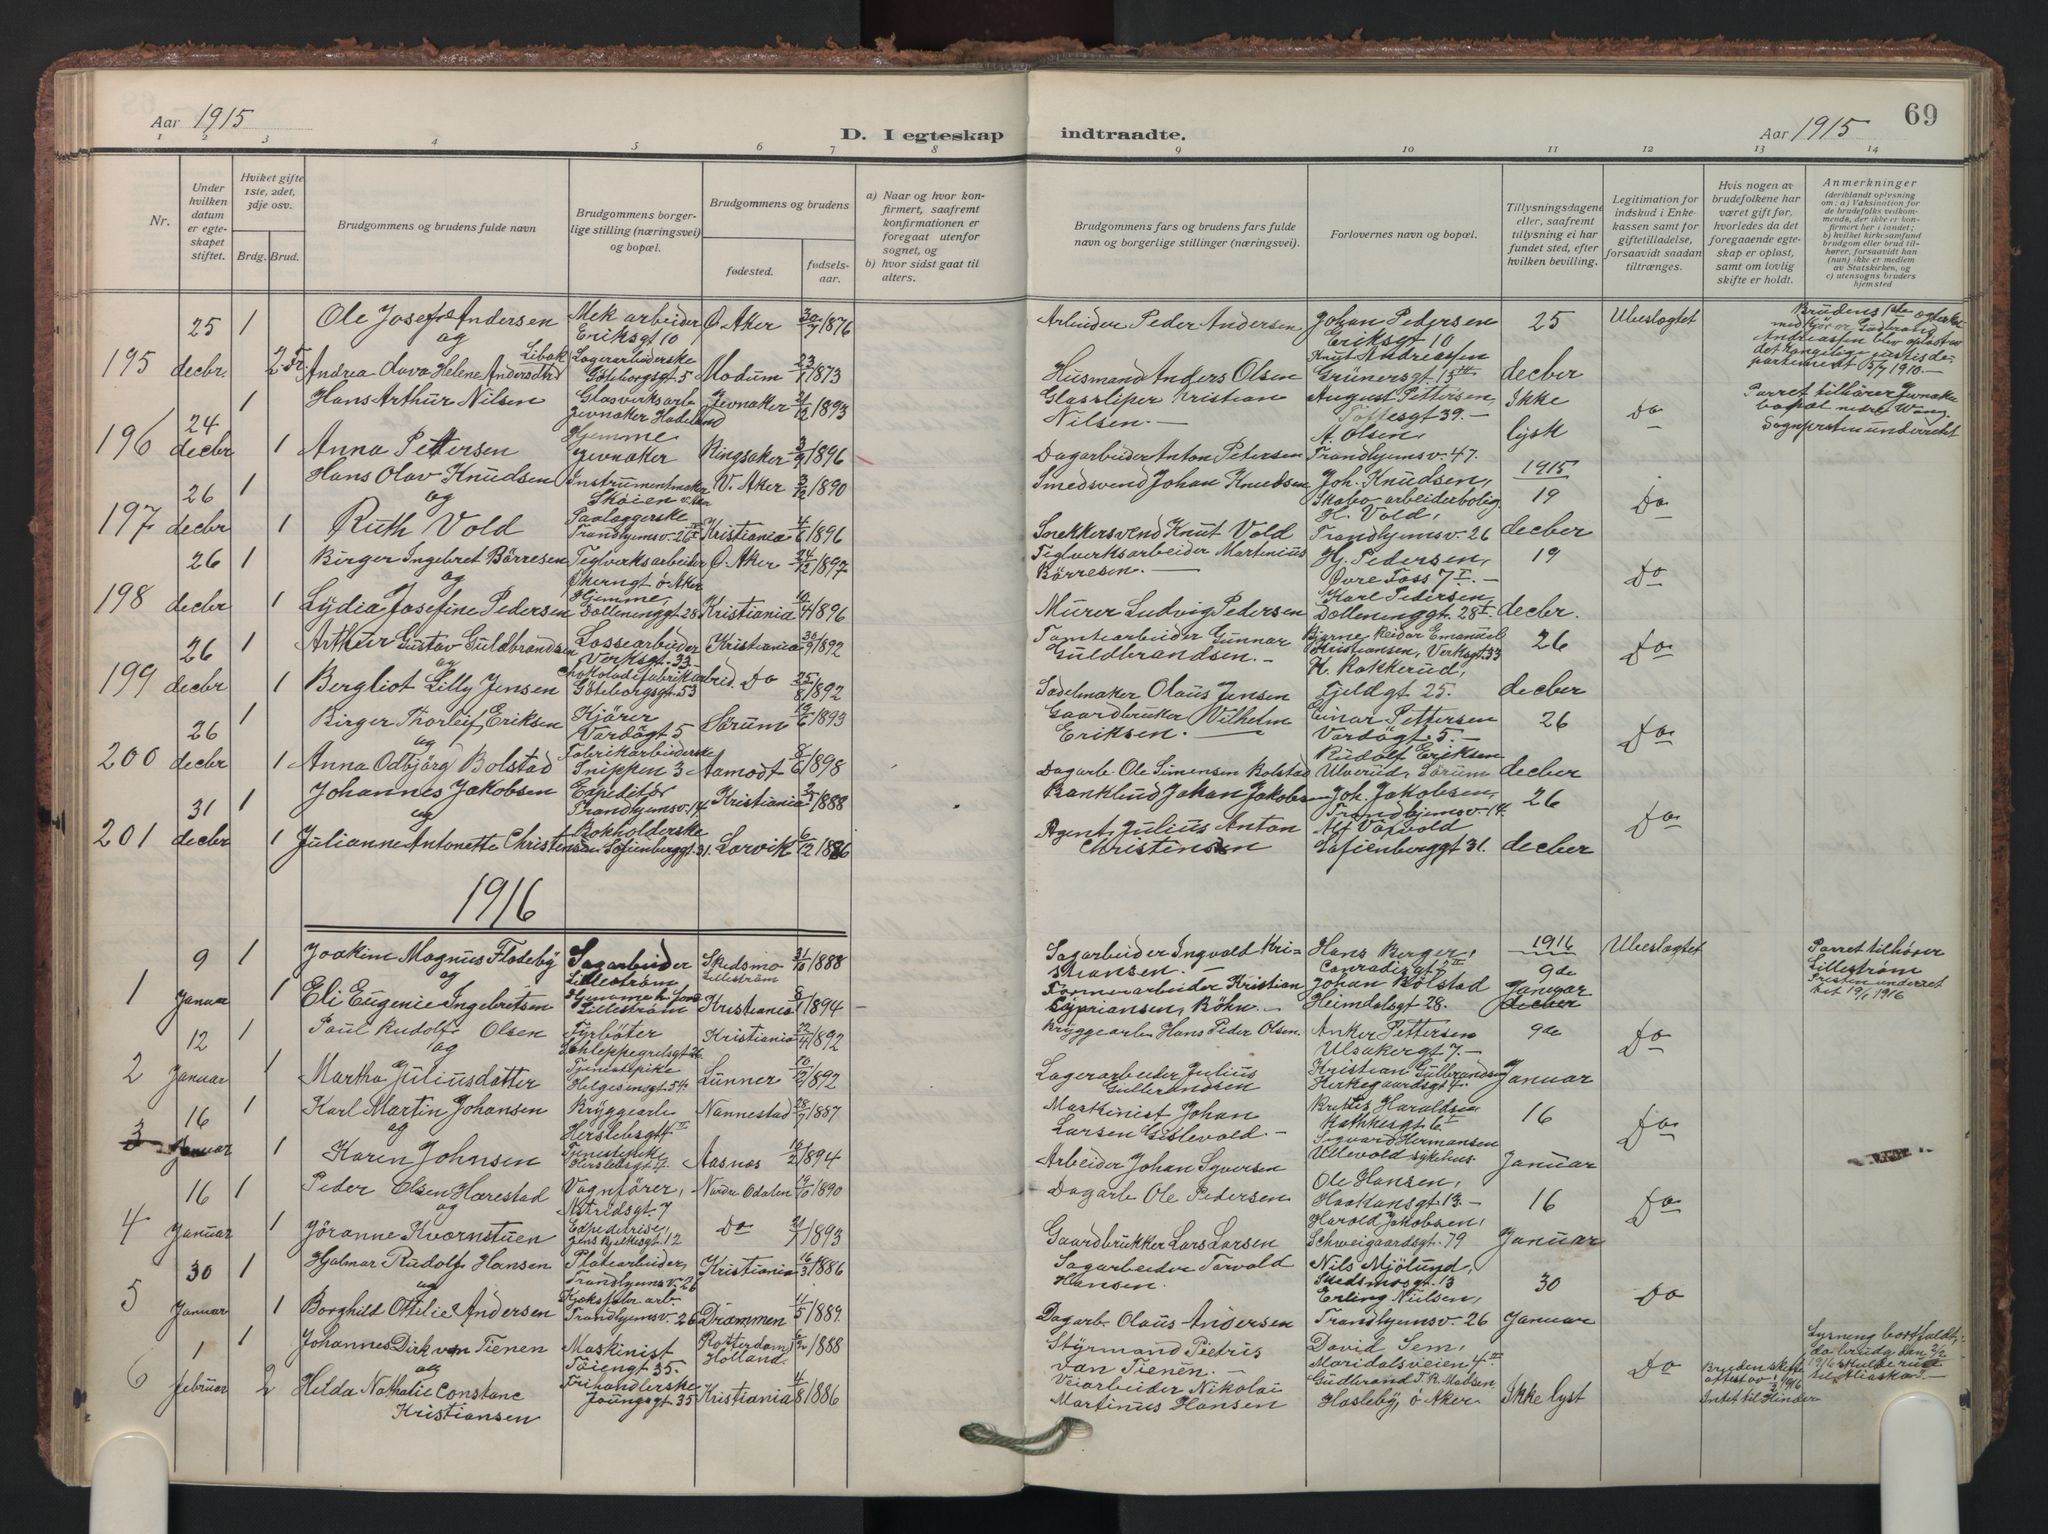 Aar 1915
D. I egteskap indtraadte.
Aar 1915
69
1 2 3 4 5 6 7 8 9 10 11 12 13 14
Nr.
Under hvilken datum er egteskapet stiftet.
Hviket gifte 1ste, 2det, 3dje osv.
Brdg. Brud.
Brudgommens og brudens fulde navn
Brudgommens borgerlige stilling (næringsvei) og bopæl.
Brudgommens og brudens
fødested.
fødselsaar.
a) Naar og hvor konfirmert, saafremt konfirmationen er foregaat utenfor sognet, og
b) hvor sidst gaat til alters.
Brudgommens fars og brudens fars fulde navn og borgerlige stillinger (næringsvei).
Forlovernes navn og bopæl.
Tillysningsdagene eller, saafremt tillysning ei har fundet sted, efter hvilken bevilling.
Legitimation for indskud i Enkekassen samt for giftetilladelse, forsaavidt saadan tiltrænges.
Hvis nogen av brudefolkene har været gift før, hvorledes da det foregaaende egteskap er opløst, samt om lovlig skifte er holdt.
Anmerkninger (deriblandt oplysning om: a) Vaksination for de brudefolks velkommende, der ikke er konfirmert her i landet; b) hvilket kirkesamfund brudgom eller brud tilhører, forsaavidt han (hun) ikke er medlem av Statskirken, og c) utensogns bruders hjemsted
25 1 Ole Josef Andersen Mek arbeider Eriksgt 10 Ø. Aker 30/7 1876 Arbeider Peder Andersen Johan Pedersen Eriksgt 10 25 Ubeslegtet
og
195 decbr. 2 Andrea Lava Helene Andersdtr Libak Lagerarbeiderske Göteborgsgt 5 Modum 23/7 1873 Husmand Anders Olsen Knut Andreassen Grünersgt 15 decber
Brudens 1ste egteskap med Kjører Gudbrand Andreassen blev opløst av det Kongelige justisdepartement 15/7 1910.
24 1 Hans Arthur Nilsen Glasverksarb Jevnaker Hadeland Jevnaker 21/12 1893 Glassliper Kristian Nilsen. August Pettersen, Toftesgt 39. Ikke Do
Parret tilhører Jevnaker
Sognpresten underrettet
196 decbr 1 Anna Pettersen Hjemme Jevnaker Ringsaker 3/9 1896 Dagarbeider Anton Petersen A. Olsen, Trondhjemsv. 47. lyst
26 1 Hans Olav Knudsen Instrumentmaker Skøien V. Aker 3/12 1890 Smedsvend Johan Knudsen Joh. Knudsen, Skabo arbeiderbolig 1915 19 Do
og
197 decbr 1 Ruth Vold Trondhjemsv. 26 II Kristiania 4/6 1896 Snekkersvend Knut Vold H. Vold, Trondhjemsv. 26 decber
26 1 Birger Ingebret Börresen Teglverksarbeider Ø. Aker 24/12 1897 Teglverksarbeider Martinius Börresen. H. Pedersen, Øvre Foss 7 I. 19 Do
og
198 decbr 1 Lydia Josefine Pedersen Hjemme, Dælenenggt. 28 Kristiania 10/4 1896 Murer Ludvig Pedersen Karl Pedersen, Dælenenggt. 28 I decbr.
26 1 Arthur Gustav Guldbrandsen Lossearbeider Verksgt. 33 Kristiania 30/9 1892 Tomtearbeider Gunnar Guldbrandsen. Bjarne Reidar Emanuel Kristiansen, Verksgt. 33 26 Do
og
199 decbr 1 Bergliot Lilly Jensen Chokoladefabrikarbeid. Göteborgsgt 53 Do 25/8 1892 Sadelmaker Olaus Jensen H. Rakkerud, Fjeldgt 25. decber
26 1 Birger Thorleif Eriksen Kjörer Vardögt 5 Sørum 19/6 1893 Gaardbruker Vilhelm Eriksen. Einar Pettersen Vardögt 5. 26 Do
og
200 decbr 1 Anna Odbjörg Bolstad Fabrikarbeiderske Snippen 3 Aamodt 8/6 1898 Dagarb. Ole Simensen Bolstad Rudolf Eriksen Ulverud Sörum decber
31 1 Johannes Jakobsen Expeditör Trondhjemsv. 14 Kristiania 1888 Bankbud Johan Jakobsen Joh. Jakobsen, Trondhjemsv. 14. 26 Do
og
201 decbr 1 Julianne Antonette Christensen Bokholderske Sofienberggt 31. Larvik 6/12 1886 Agent Julius Anton Christensen Alf Vaavold Sofienberggt 31. decber
1916
9 1 Joakim Magnus Floseby Sagarbeider Lilleström Skedsmo Lilleström 31/10 1888 Sagarbeider Ingvald Kristiansen. Hans Berger, Conradisgt 2 II 1916 9de Ubeslegtet
Parret tilhører Lilleström Presten underrettet 19/1 1916
og
1 Januar 1 Eli Eugenie Ingebretsen Lilleström Kristiania 8/1 1894 Formerarbeider Kristian Cyprianssen, Böhn. Johan Bölstad Heimdalsgt 28. Januar decber
12 1 Paul Rudolf Olsen Fyrböter Schleppegrelsgt 26 Kristiania 22/4 1892 Bryggearb Hans Peder Olsen. Anker Pettersen Ulsakergt 7. 9de Do
og
2 Januar 1 Martha Juliusdatter Tjenestepike Helgesensgt 54 Lunner 10/12 1892 Lagerarbeider Julius Gulbrandsen Kristian Gulbrandsen Kirkegaardsgt 7. Januar
16 1 Karl Martin Johansen Bryggearb Herslebsgt 4 II Nannestad 28/7 1887 Maskinist Johan Larsen Gislevold. Haraldsen Rathkesgt 6 I 16 Do
og
3 Januar 1 Karen Johnsen Tjenestepike Herslebsgt 4. Aasnes 19/2 1894 Arbeider Johan Syversen Sigvard Hermansen Ullevold sykehus. Januar
16 1 Peder Olsen Hærestad Vognfører, Astridsgt. 7 Nordre Odalen 19/10 1890 Dagarb Ole Pedersen Ole Hansen, Haakansgt 13. 16 Do
og
4 Januar 1 Jöranne Kvernstuen Expeditrise, Jens Bjelkesgt. 12 Do 21/7 1893 Gaardbrukker Lars Larsen Harald Jakobsen, Schweigaardsgt. 79 Januar
30 1 Hjalmar Rudolf Hansen Platearbeider, Trondhjemsv. 26 Kristiania 16/3 1886 Sagarbeider Torvald Hansen. Nils Mjölund, Skedsmogt. 13 30 Do
og
5 Januar 1 Borghild Ottilie Andersen Kjeksfabr arb. Trondhjemsv. 26 Drammen 11/5 1889. Dagarb. Olaus Andersen Erling Nielsen, Trondhjemsv. 26 Januar
1 Johannes Dirk van Tienen Maskinist Töiengt 35. Rotterdam, Holland. 6/2 1888 Styrmand Pietris van Tienen. David Sem, Maridalsveien 4 II Do
Lysning bortfaldt, da brudg den 2/2 1916 skulde reise til Alaska
og
6 februar 2 Hilda Nathalie Constanc Kristiansen Frihandlerske Joungsgt 35 Kristiania 4/8 1886 Veiarbeider Nikolai Martinus Hansen Gudbrand T. R. Madsen Hasleby, Ø Aker Ikke lyst
Bruden skifteattest av 1/2 1916 Intet til Hinder